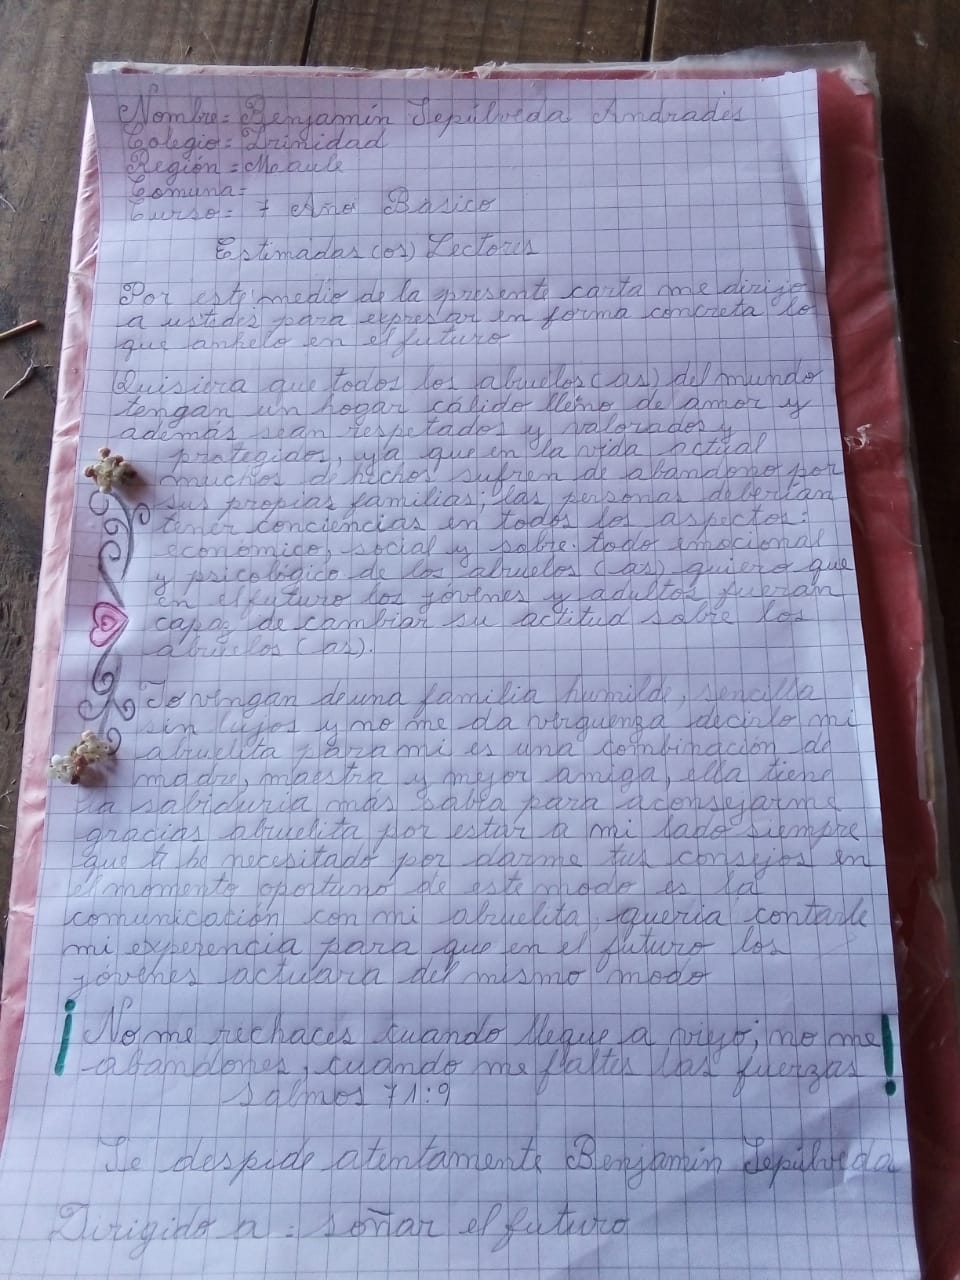 Nombre = Benjamín Sepúlveda Andrades
Colegio = Trinidad
Región = Maule
Comuna =
Curso = 7 Año Básico
Estimadas (os) Lectores
Por este medio de la presente carta me dirijo
a ustedes para expresar en forma concreta lo
que anhelo en el futuro
Quisiera que todos los abuelos (as) del mundo
tengan un hogar cálido lleno de amor y
además sean respetados y valorados y
protegidos, ya que en la vida actual
muchos de hechos sufren de abandono por
sus propias familias; las personas deberían
tener conciencias en todos los aspectos:
económico, social y sobre todo emocional
y psicológico de los abuelos (as) quiero que
en el futuro los jóvenes y adultos fueran
capaz de cambiar su actitud sobre los
abuelos (as).
Yo vengan de una familia humilde, sencilla
sin lujos y no me da verguenza decirlo mi
abuelita para mi es una combinación de
madre, maestra y mejor amiga, ella tiene
la sabiduría más sabia para aconsejarme
gracias abuelita por estar a mi lado siempre
que te he necesitado por darme tus consejos en
el momento oportuno de este modo es la
comunicación con mi abuelita, queria contarle
mi experencia para que en el futuro los
jóvenes actuara del mismo modo
¡No me rechaces cuando llegue a viejo; no me
abandones, cuando me faltes las fuerzas!
Salmos 71:9
Se despide atentamente Benjamín Sepúlveda
Dirigido a: soñar el futuro